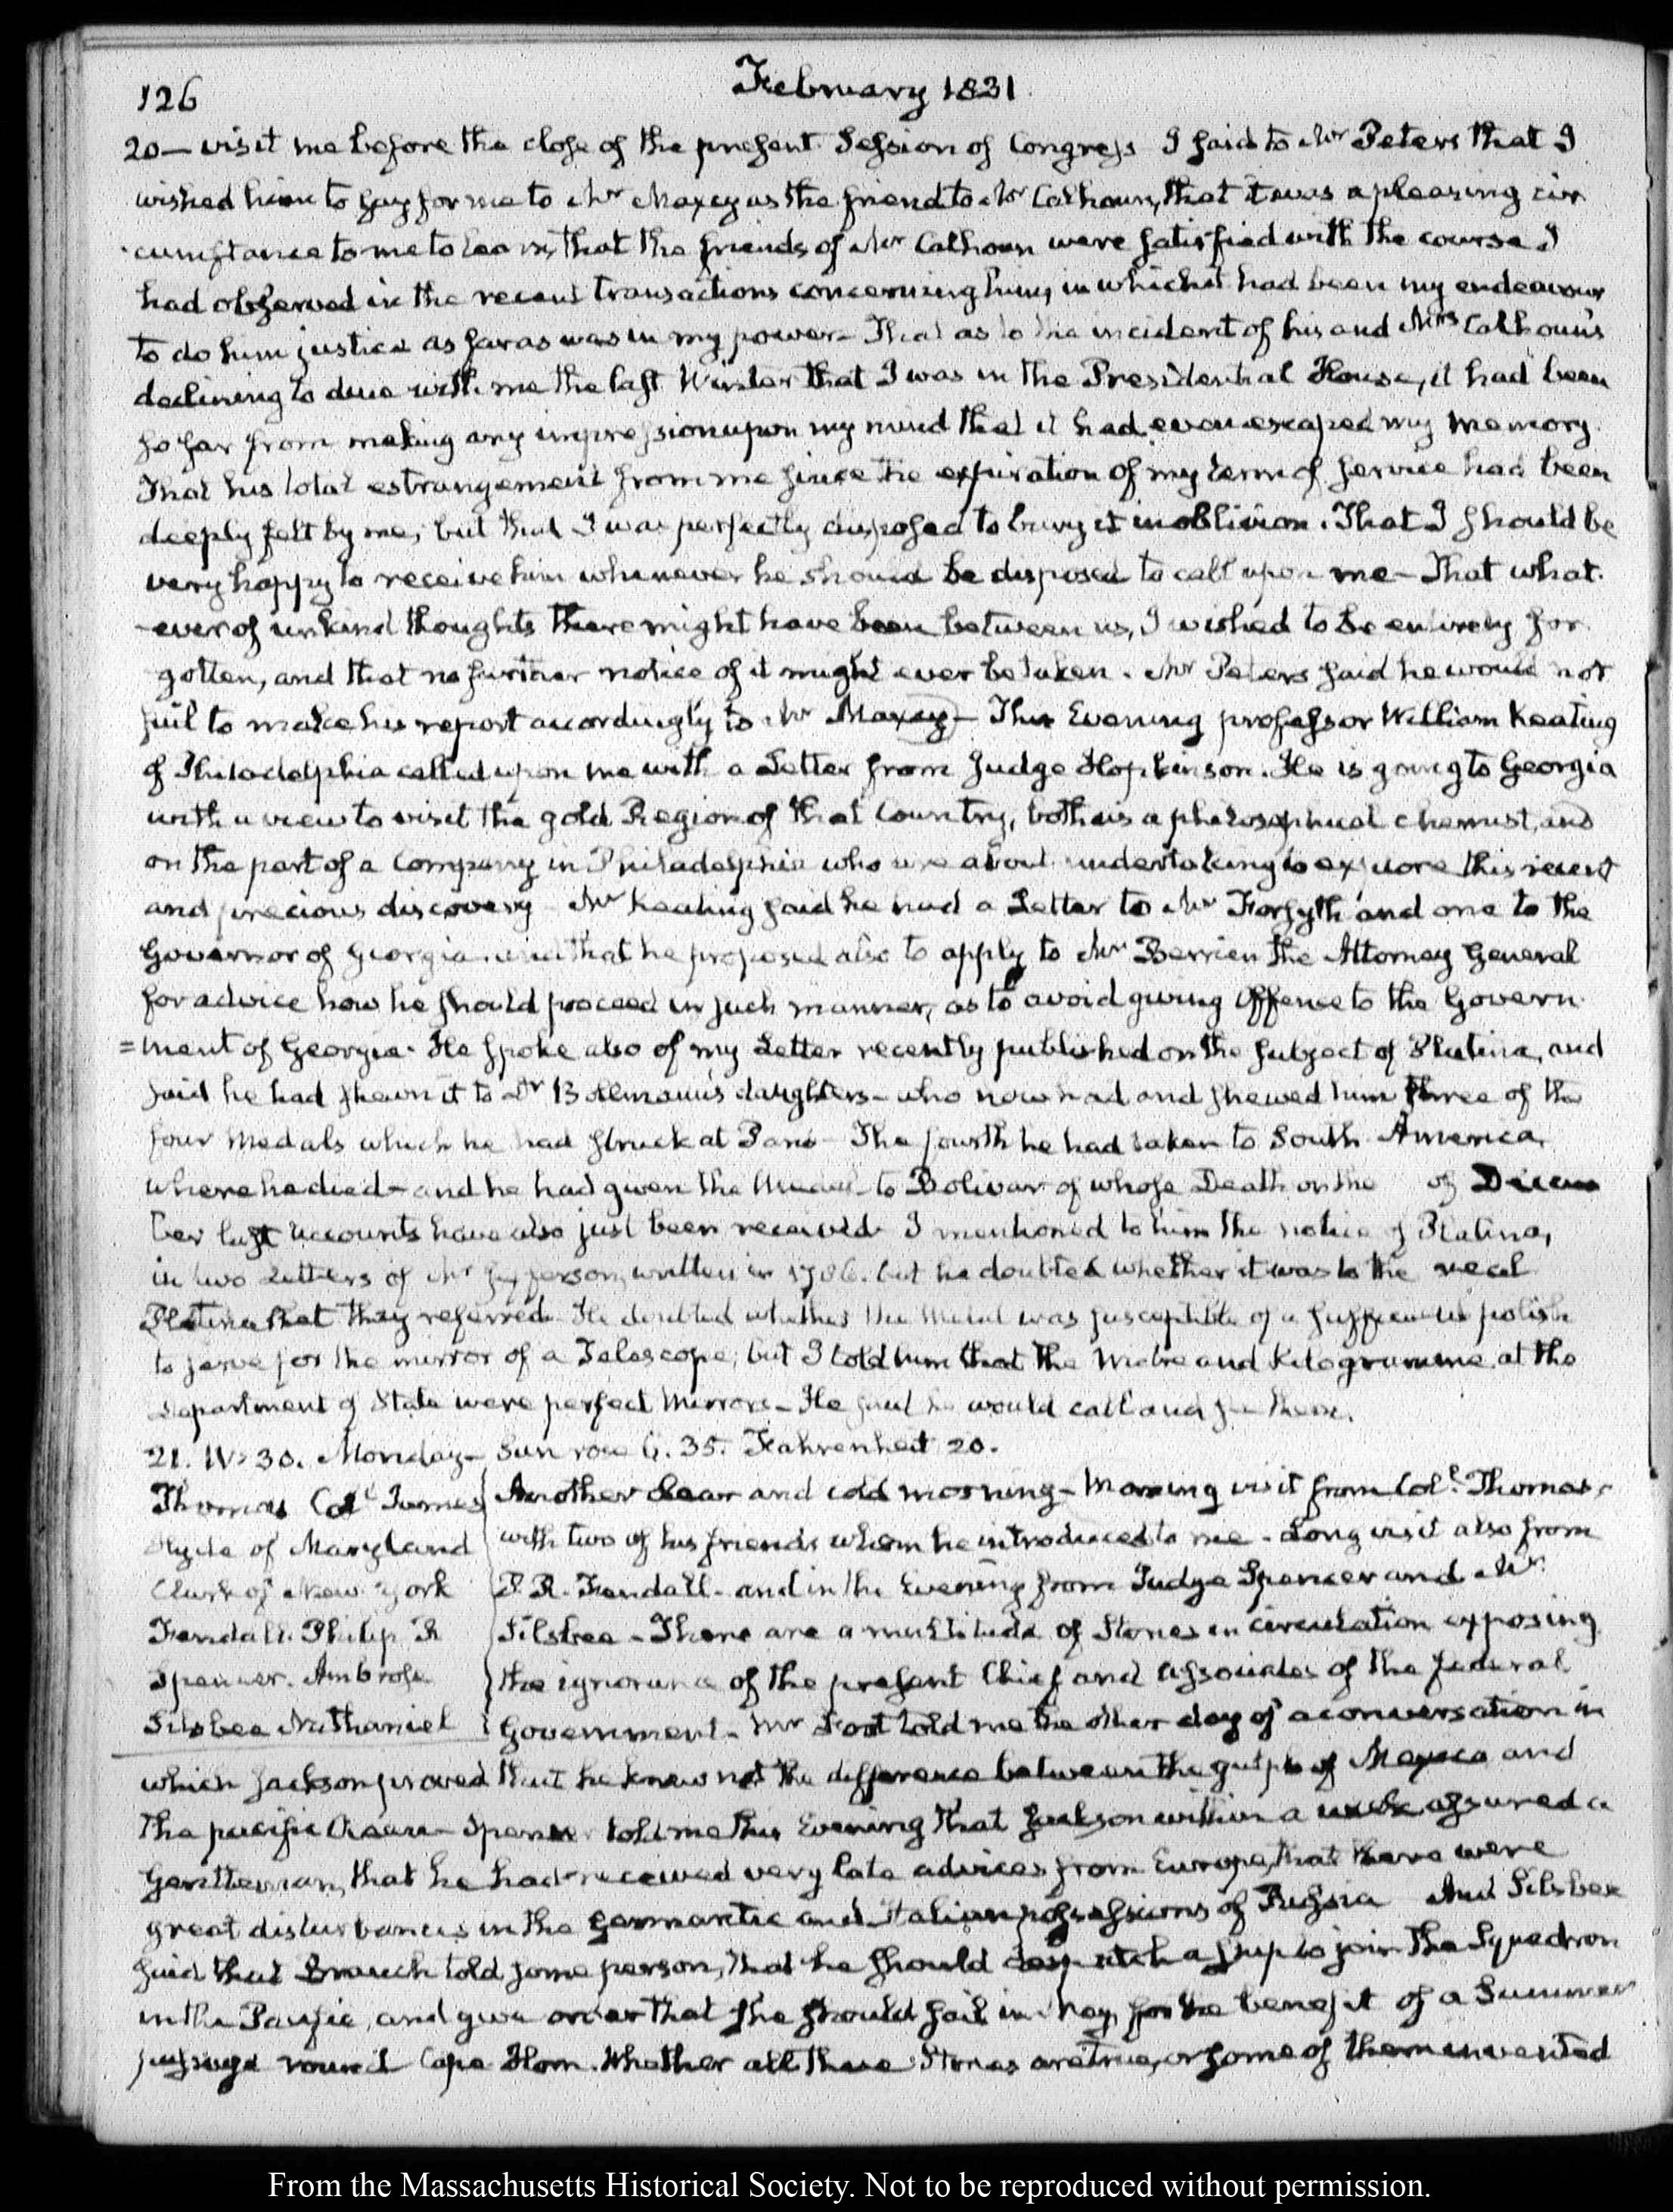 126
February 1831.
20 — visit me before the close of the present Session of Congress I said to Mr Peters that I
wished him to say for me to Mr Maxcy as the friend to Mr Calhoun, that it was a pleasing cir
cumstance to me to learn, that the friends of Mr Calhoun were satisfied with the course I
had observed in the recent transactions concerning him, in which it had been my endeavour
to do him justice as far as was in my power — That as to the incident of his and Mrs Calhoun's
declining to dine with me the last Winter that I was in the Presidential House, it had been
so far from making any impression upon my mind that it had even escaped my memory.
That his total estrangement from me since the expiration of my term of service had been
deeply felt by me, but that I was perfectly disposed to bury it in oblivion. That I should be
very happy to receive him whenever he should be disposed to call upon me — That what-
-ever of unkind thoughts there might have been between us, I wished to be entirely for
gotten, and that no further notice of it might ever be taken. Mr Peters said he would not
fail to make his report accordingly to Mr Maxcy — This Evening professor William Keating
of Philadelphia called upon me with a Letter from Judge Hopkinson. He is going to Georgia
with a view to visit the gold Region of that Country, both as a philosophical chemist, and
on the part of a Company in Philadelphia who are about undertaking to explore this recent
and precious discovery Mr Keating said he had a Letter to Mr Forsyth and one to the
Governor of Georgia. and that he proposed also to apply to Mr Berrien the Attorney General
for advice how he should proceed in such manner, as to avoid giving offence to the Govern
=ment of Georgia. He spoke also of my Letter recently published on the subject of Platina, and
said he had shewn it to Dr Bollmann's daughters — who now had and shewed him three of the
four Medals which he had struck at Paris — The fourth he had taken to South America,
where he died — and he had given the Medal to Bolivar of whose Death on the of Decem
ber last accounts have also just been received I mentioned to him the notice of Platina,
in two Letters of Mr Jefferson, written in 1786. but he doubted whether it was to the real
Platina that they referred. He doubted whether the Metal was susceptible of a sufficient polish
to serve for the mirror of a Telescope; but I told him that the Metre and Kilogramme at the
Department of State were perfect Mirrors — He said he would call and see them.
21. IV:30. Monday — Sun rose 6.35. Fahrenheit 20.
Thomas Coll James
Hyde of Maryland
Clark of New-York
Fendall. Philip R
Spencer. Ambrose
Silsbee Nathaniel
Another clear and cold morning — Morning visit from Coll. Thomas,
with two of his friends whom he introduced to me — Long visit also from
P. R. Fendall — and in the Evening from Judge Spencer and Mr
Silsbee — There are a multitude of Stories in circulation exposing
the ignorance of the present Chief and associates of the federal
Government — Mr Foot told me the other day of a conversation in
which Jackson proved that he knew not the difference between the gulph of Mexico and
the pacific Ocean — Spencer told me this Evening that Jackson within a week assured a
Gentleman, that he had received very late advices from Europe, that there were
great disturbances in the and Italian possessions of Russia And Silsbee
said that Branch told some person, that he should despatch a ship to join the Squadron
in the Pacific, and give order that she should sail in May, for the benefit of a Summer
passage round Cape Horn. Whether all these Stories are true, or some of them invented
From the Massachusetts Historical Society. Not to be reproduced without permission.